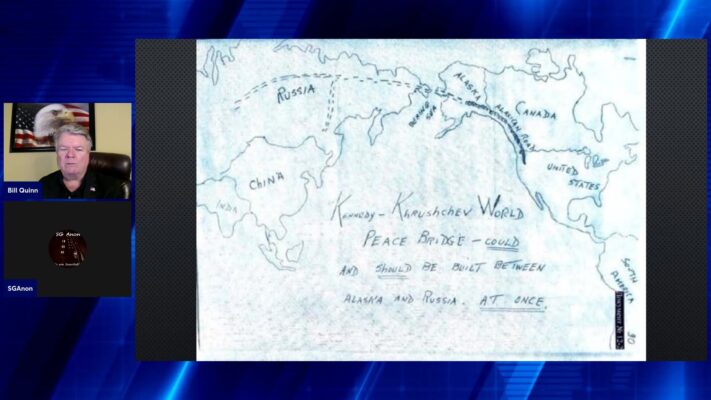 RUSSIA
ALASKA
ALASKAN
CANADA
BERING
SEA
UNITED
STATES
CHINA
INDIA
SOUTH
AMERICA
KENNEDY - KHRUSHCHEV WORLD
PEACE BRIDGE - COULD
AND SHOULD BE BUILT BETWEEN
ALASKA AND RUSSIA. AT ONCE.
Bill Quinn
SG Anon
SGAnon